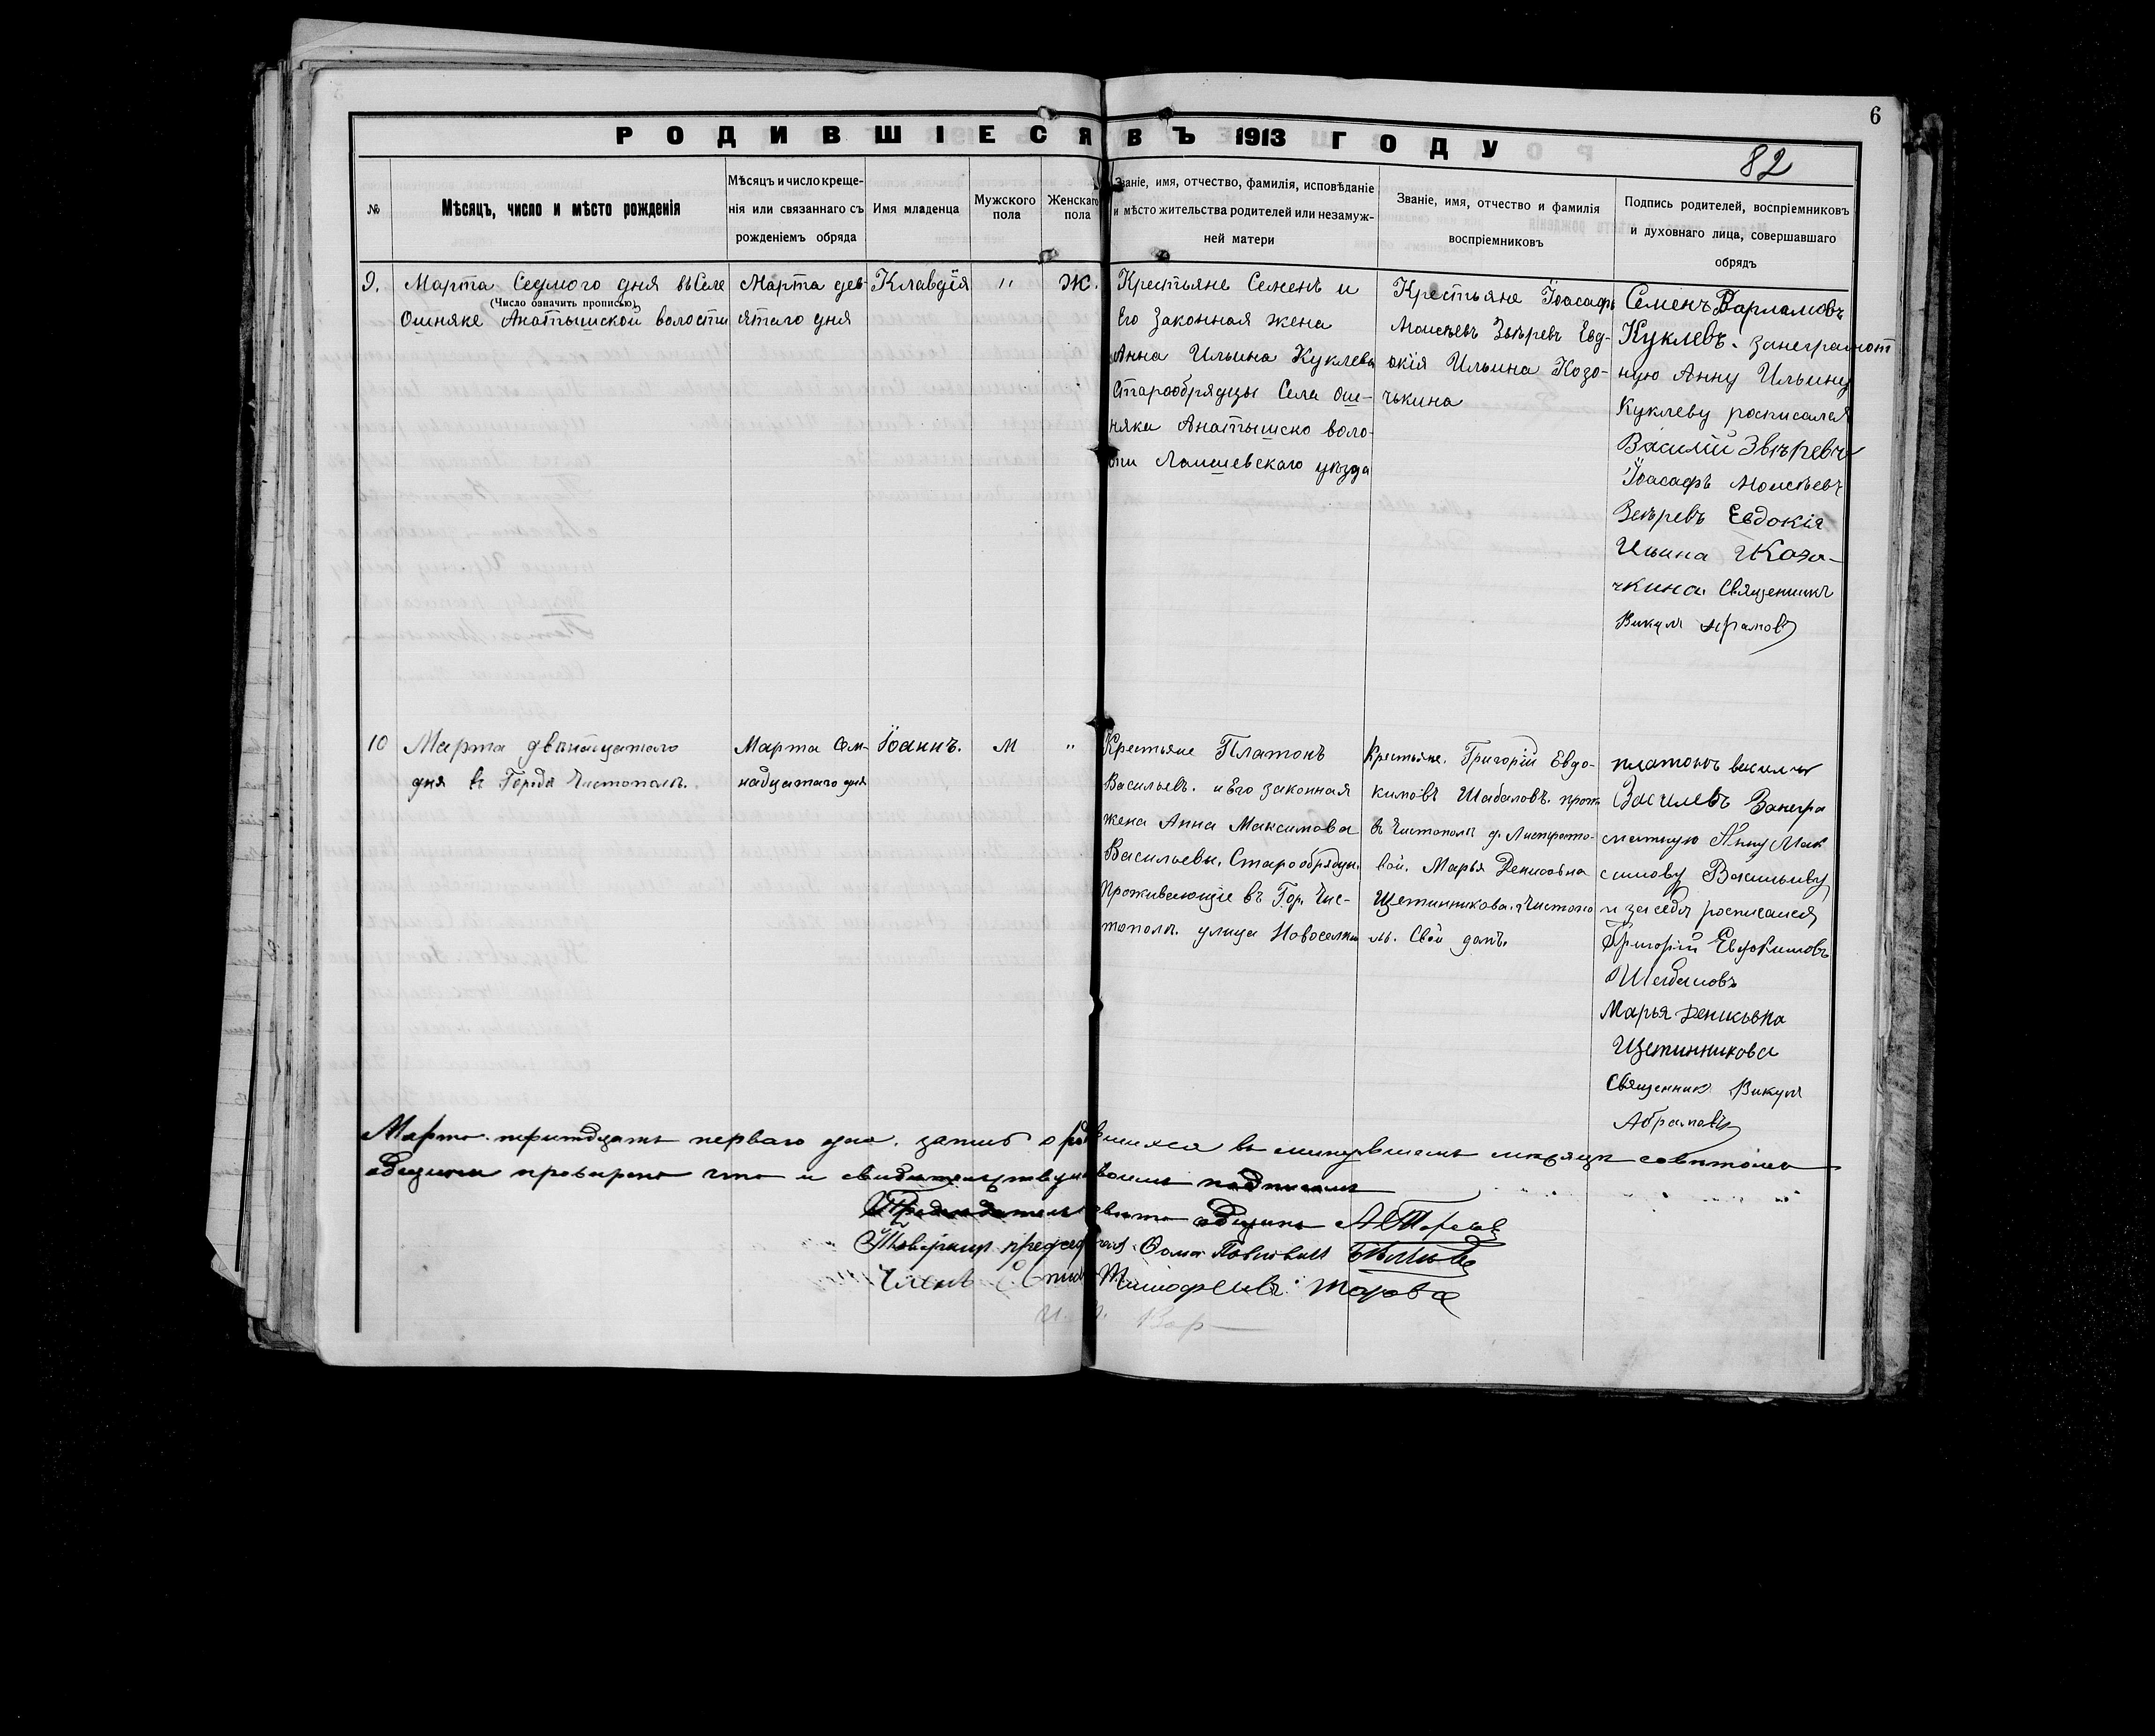 6
РОДИВШІЕСЯ ВЪ 1913 ГОДУ
82
№
Мѣсяцъ, число и мѣсто рожденія
Мѣсяцъ и число креще-
нія или связаннаго съ
рожденіемъ обряда
Имя младенца
Мужского
пола
Женскаго
пола
Званіе, имя, отчество, фамилія, исповѣданіе
и мѣсто жительства родителей или незамуж-
ней матери
Званіе, имя, отчество и фамилія
воспріемниковъ
Подпись родителей, воспріемниковъ
и духовнаго лица, совершавшаго
обрядъ
9.
Марта Седмого дня въ Селе
(Число означить прописью)
Ошняке Анатышской волости
Марта дев-
ятаго дня
Клавдія
"
Ж.
Крестьяне Семенъ и
Его Законная жена
Анна Ильина Куклевы
Старообрядцы Села Ош-
няка Анатышско воло-
сти Лаишевскаго уѣзда
Крестьяне Іоасафъ
Моисѣевъ Звѣревъ Евд-
окія Ильина Козо-
чькина
Семенъ Варламовъ
Куклевъ. занеграмот
ную Анну Ильину
Куклеву росписался
Василій Звѣревъ
Іоасафъ Моисѣевъ
Звѣревъ Евдокія
Ильина Козо-
чкина. Священникъ
Викулъ Абрамовъ
10
Марта двѣнатцатаго
дня въ Городѣ Чистополѣ.
Марта сем-
надцатаго дня
Іоаннъ.
М
"
Крестьяне Платонъ
Васильевъ. и его законная
жена Анна Максимова
Васильевы. Старообрядцы.
Проживающіе въ Гор. Чис-
тополѣ. улица Новоселки
Крестьяне. Григорій Евдо-
кимовъ Шабаловъ. прож
въ Чистополѣ д.
вой. Марья Денисовна
Щетинникова. г Чистопо
лѣ. Свой домъ.
платонъ василичъ
Василевъ Занегра
мотную Анну Мак
симову Васильиву
и за себя росписался
Григорій Евдокимовъ
Шабаловъ
Марья Денисьвна
Щетинникова
Священник Викулъ
Абрамовъ
Марта тритдцать перваго дня. запись о родившихся въ минувшемъ мѣсяцѣ совѣтомъ
общины проверена что и свидѣтельствуемъ своимъ подписомъ
Председатель совѣта общины
Товарищ председателя Фома Павловичъ
Членъ Тимофеивъ